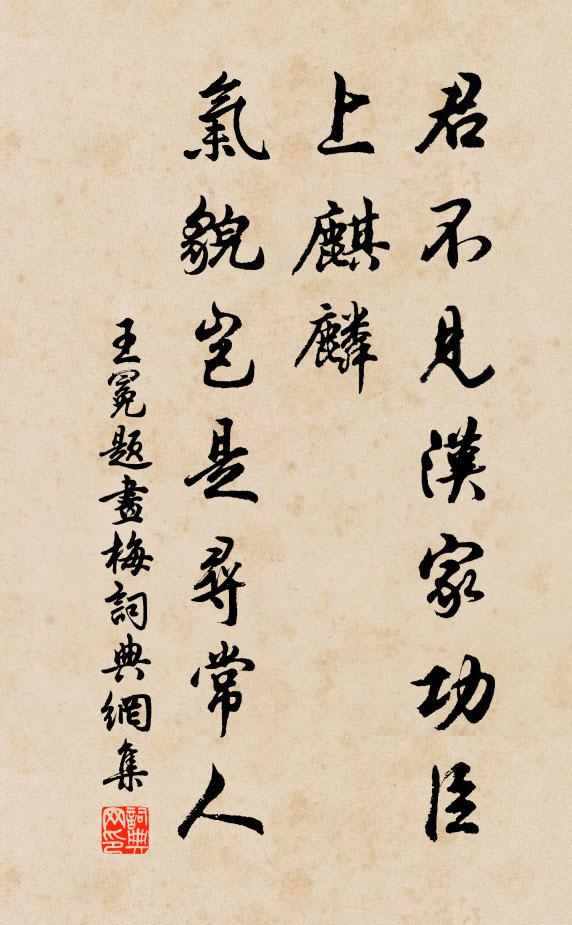 君不見漢家功臣
上麒麟
氣貌豈是尋常人
王冕題畫梅詞典網集
詞典網印